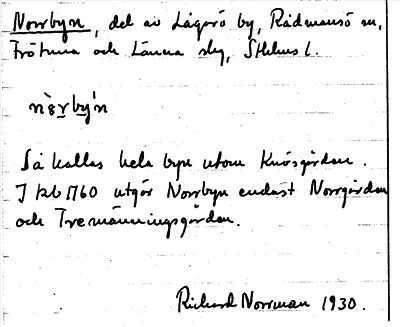 Norrbyn, del av Lågarö by, Rådmansö sn,
Frötuna och Länna slg, Sthlms l.
nò̀rby̆́n
Så kallas hela byn utom Knösgården.
I kb 1760 utgör Norrbyn endast Norrgården
och Tremänningsgården.
Richard Norrman 1930.